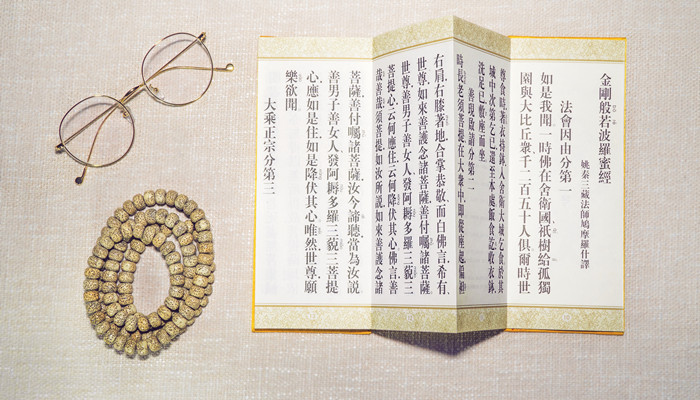 金剛般若波羅蜜經
姚秦三藏法師鳩摩羅什譯
法會因由分第一
如是我聞、一時佛在舍衛國、祇樹給孤獨
園、與大比丘衆、千二百五十人俱、爾時世
尊食時、著衣持鉢、入舍衛大城乞食、於其
城中、次第乞已、還至本處、飯食訖、收衣鉢、
洗足已、敷座而坐
善現啟請分第二
時長老須菩提、在大衆中、即從座起、偏袒
右肩、右膝著地、合掌恭敬、而白佛言、希有、
世尊、如來善護念諸菩薩、善付囑諸菩薩、
世尊、善男子善女人、發阿耨多羅三藐三
菩提心、云何應住、云何降伏其心、佛言、善
哉善哉、須菩提、如汝所說、如來善護念諸
菩薩、善付囑諸菩薩、汝今諦聽、當為汝說
善男子善女人、發阿耨多羅三藐三菩提
心、應如是住、如是降伏其心、唯然世尊、願
樂欲聞
大乘正宗分第三